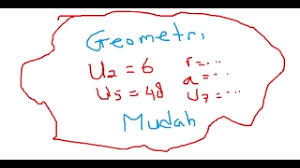 Geometri
U2 = 6 r = ...
a = ...
U5 = 48 U7 = ...
Mudah